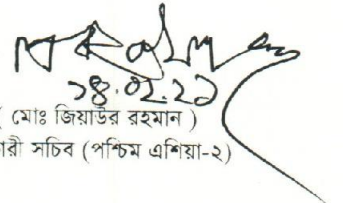 ১৪.০২.২১
( মোঃ জিয়াউর রহমান )
রী সচিব (পশ্চিম এশিয়া-২)